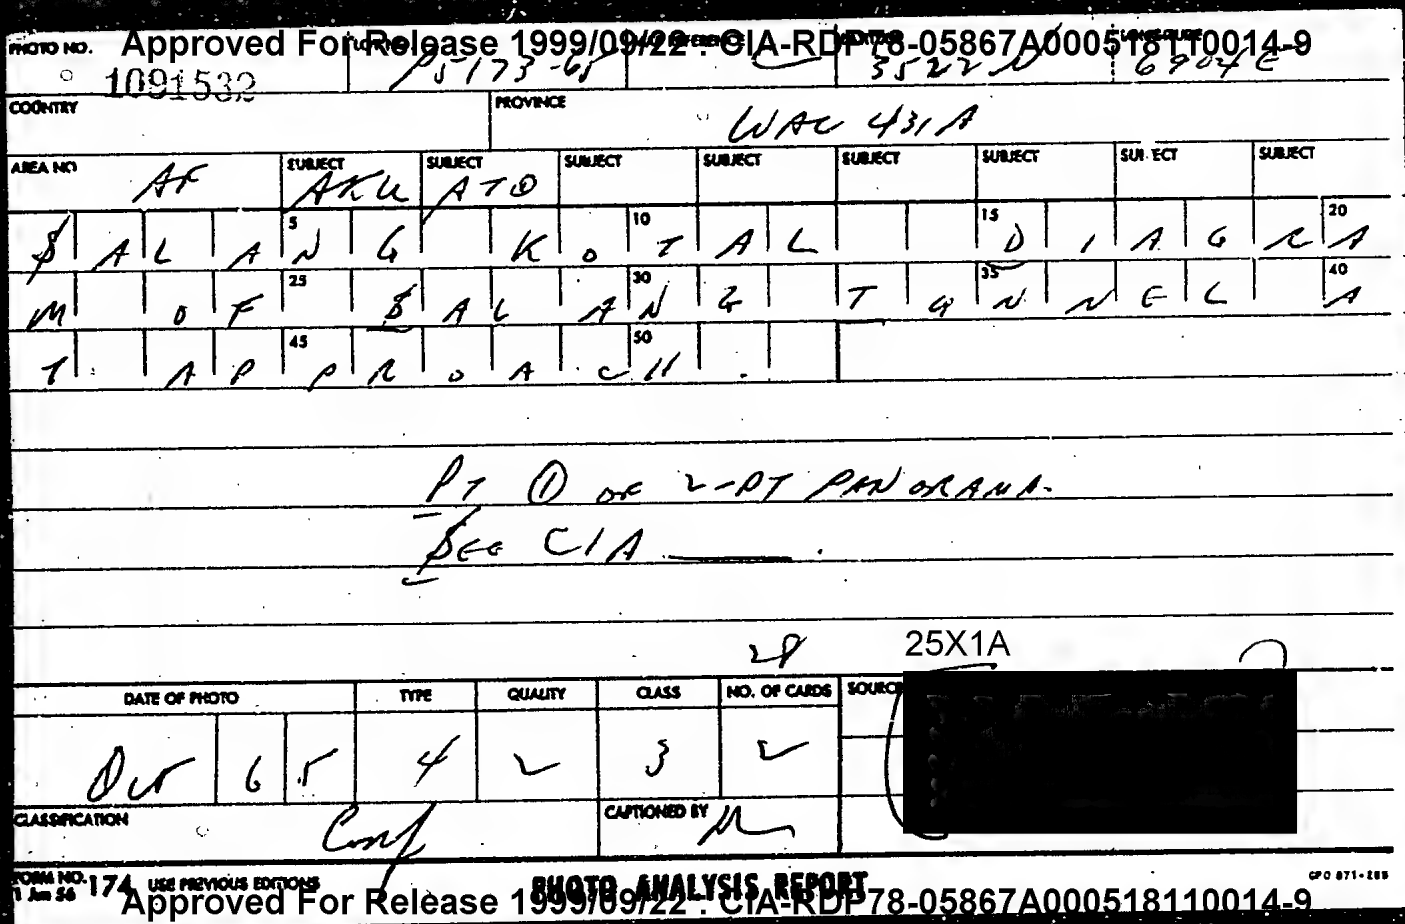 Approved For Release 1999/09/22 : CIA-RDP78-05867A000518110014-9
PHOTO NO. 1091532 P5173-65 3522N 6904E
COUNTRY PROVINCE WAC 431A
AREA NO AF SUBJECT AKU SUBJECT ATO SUBJECT SUBJECT SUBJECT SUBJECT SUBJECT SUBJECT
5 10 15 20
SALANG KOTAL DIAGRA
25 30 35 40
M OF SALANG TUNNEL A
45 50
T APPROACH.
PT 1 OF 2-PT PANORAMA.
SEE CIA ______.
28 25X1A
DATE OF PHOTO TYPE QUALITY CLASS NO. OF CARDS SOURCE
Oct 65 4 2 3 2
CLASSIFICATION Conf CAPTIONED BY
FORM NO. 174 USE PREVIOUS EDITIONS PHOTO ANALYSIS REPORT GPO 871-285
1 Jun 56
Approved For Release 1999/09/22 : CIA-RDP78-05867A000518110014-9